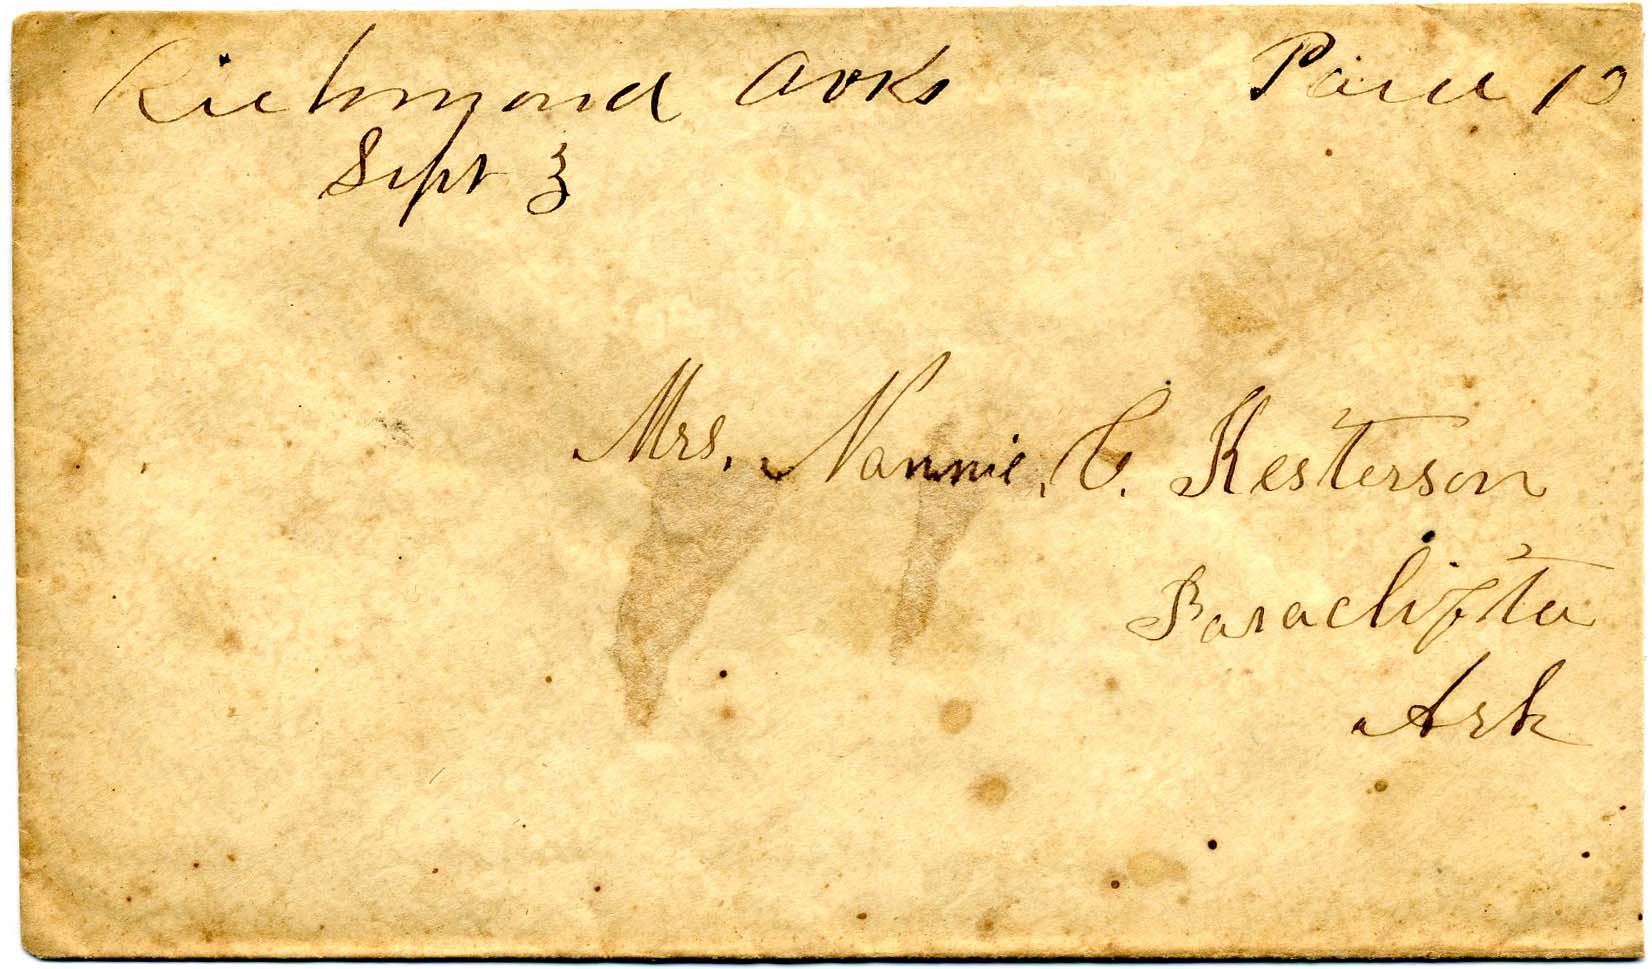 Richmond Arks Paid 10
Sept 3
Mrs. Nannie, C. Kesterson
Paraclifta
Ark